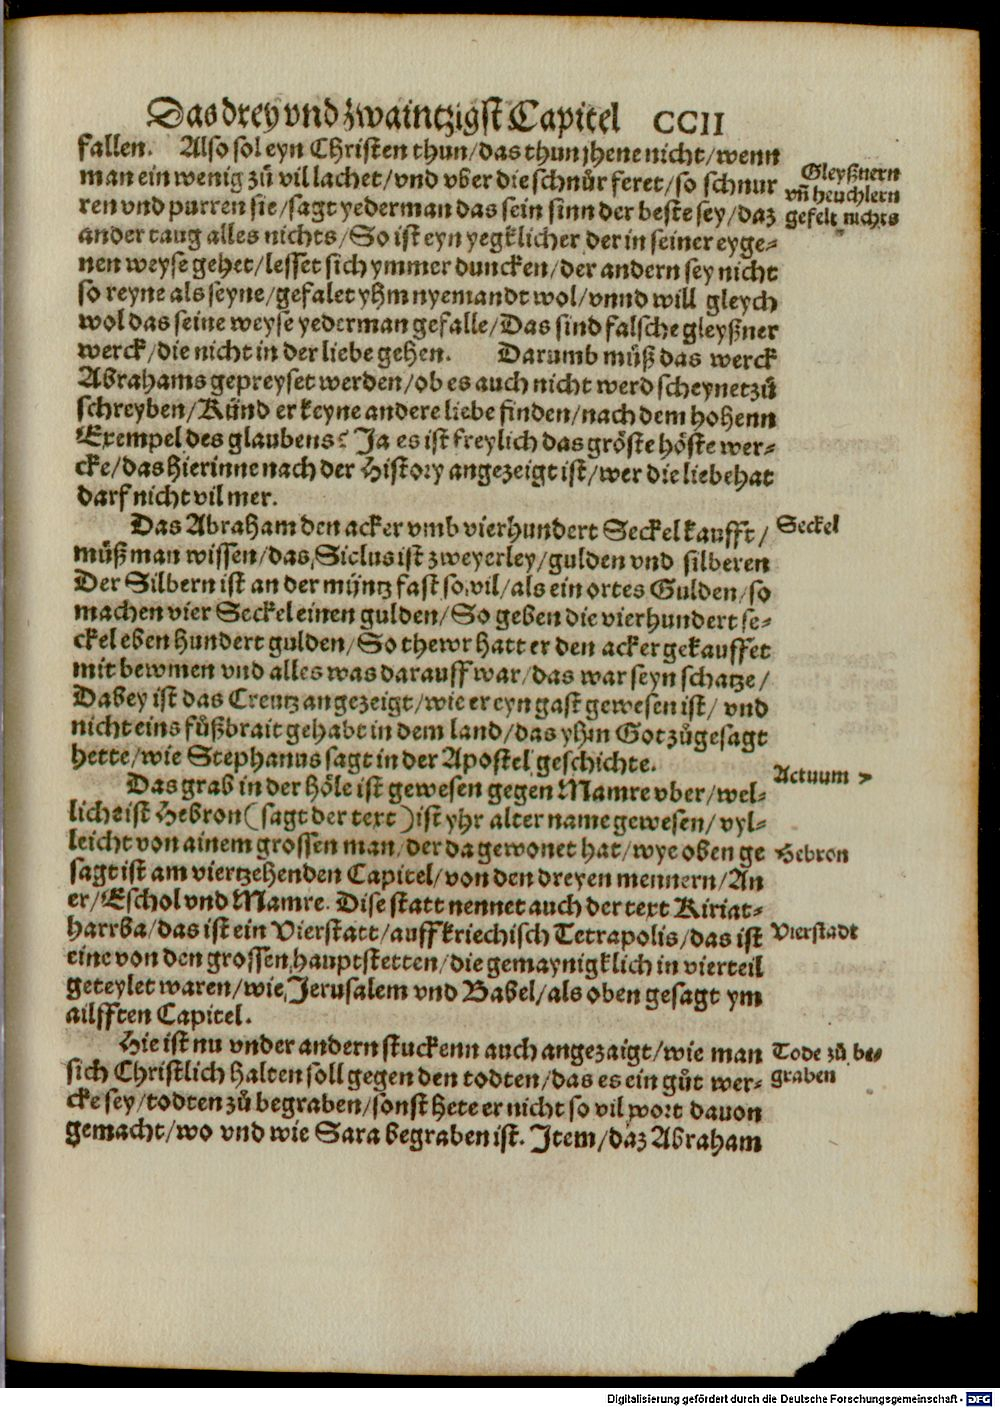 Das drey vnd zwaintzigst Capitel CCII
fallen. Also sol eyn Christen thun/das thun jhene nicht/wenn
man ein wenig zů vil lachet/vnd vber die schnůr feret/so schnur
ren vnd purren sie/sagt yederman das sein sinn der beste sey/daz
ander taug alles nichts/So ist eyn yegklicher der in seiner eyge-
nen weyse gehet/lesset sich ymmer duncken/der andern sey nicht
so reyne als seyne/gefalet yhm nyemandt wol/vnnd will gleych
wol das seine weyse yederman gefalle/Das sind falsche gleyßner
werck/die nicht in der liebe gehen. Darumb můß das werck
Abrahams gepreyset werden/ob es auch nicht werd scheynet zů
schreyben/Kůnd er keyne andere liebe finden/nach dem hohenn
Exempel des glaubens? Ja es ist freylich das gröste höste wer-
cke/das hierinne nach der History angezeigt ist/wer die liebe hat
darf nicht vil mer.
Das Abraham den acker vmb vierhundert Seckel kaufft/
můß man wissen/das Siclus ist zweyerley/gulden vnd silberen
Der Silbern ist an der můntz fast so vil/als ein ortes Gulden/so
machen vier Seckel einen gulden/So geben die vierhundert se-
ckel eben hundert gulden/So thewr hatt er den acker gekauffet
mit bewmen vnd alles was darauff war/das war seyn schatze/
Dabey ist das Creutz angezeigt/wie er eyn gast gewesen ist/ vnd
nicht eins fůßbrait gehabt in dem land/das yhm Got zůgesagt
hette/wie Stephanus sagt in der Apostel geschichte.
Das grab in der höle ist gewesen gegen Mamre vber/wel-
liche ist Hebron (sagt der text) ist yhr alter name gewesen/vyl-
leicht von ainem grossen man/der da gewonet hat/wye oben ge
sagt ist am viertzehenden Capitel/von den dreyen mennern/An
er/Eschol vnd Mamre. Dise statt nennet auch der text Kiriat-
harrba/das ist ein Vierstatt/auff kriechisch Tetrapolis/das ist
eine von den grossen hauptstetten/die gemaynigklich in vierteil
geteylet waren/wie Jerusalem vnd Babel/als oben gesagt ym
ailfften Capitel.
Hie ist nu vnder andern stuckenn auch angezaigt/wie man
sich Christlich halten soll gegen den todten/das es ein gůt wer-
cke sey/todten zů begraben/sonst hete er nicht so vil wort dauon
gemacht/wo vnd wie Sara begraben ist. Item/daz Abraham
Gleyßnern
vñ heuchlern
gefelt nichts
Seckel
Actuum 7
Hebron
Vierstadt
Tode zů be-
graben
Digitalisierung gefördert durch die Deutsche Forschungsgemeinschaft - DFG